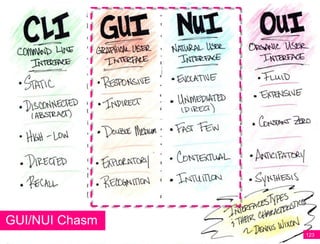 CLI
COMMAND LINE
INTERFACE
• STATIC
• DISCONNECTED
(ABSTRACT)
• HIGH - LOW
• DIRECTED
• RECALL
GUI
GRAPHICAL USER
INTERFACE
• RESPONSIVE
• INDIRECT
• DOUBLE MEDIUM
• EXPLORATORY
• RECOGNITION
NUI
NATURAL USER
INTERFACE
• EVOCATIVE
• UNMEDIATED
(DIRECT)
• FAST FEW
• CONTEXTUAL
• INTUITION
OUI
ORGANIC USER
INTERFACE
• FLUID
• EXTENSIVE
• CONSTANT ZERO
• ANTICIPATORY
• SYNTHESIS
INTERFACES TYPES
& THEIR CHARACTERISTICS
~ DENNIS WIXON
GUI/NUI Chasm
123